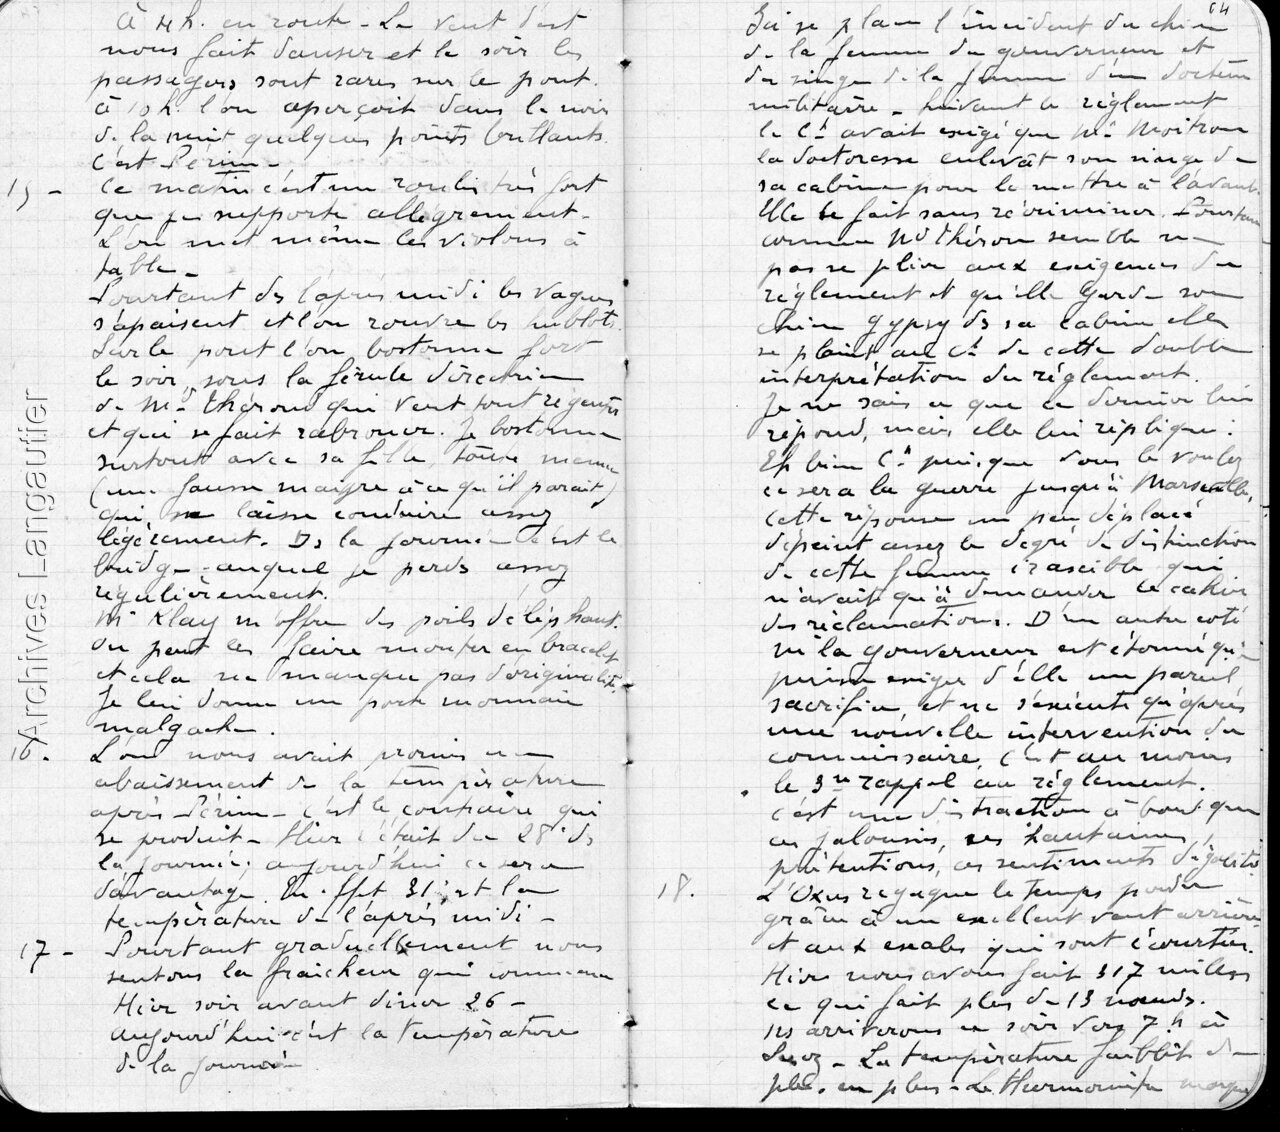 à 4h. en route - Le vent d'est
nous fait danser et le soir les
passagers sont rares sur le pont.
à 10h. l'on aperçoit dans le noir
de la nuit quelques points brillants.
C'est Périm -
15 - Ce matin c'est un roulis très fort
que je supporte allégrement -
L'on met même les violons à
table -
Pourtant ds l'après midi les vagues
s'apaisent et l'on rouvre les hublots.
Sur le pont l'on bostonne fort
le soir, sous la férule directrice
de Md Théron qui veut tout régenter
et qui se fait rabrouer. Je bostonne
surtout avec sa fille, menue
(une fausse maigre à ce qu'il parait)
qui se laisse conduire assez
légèrement. Ds la journée c'est le
bridge auquel je perds assez
régulièrement.
Mr Klay m'offre des poils d'éléphant.
On peut les faire monter en bracelet
et cela ne manque pas d'originalité.
Je lui donne un porte monnaie
malgache.
16. L'on nous avait promis un
abaissement de la température
après Périm - c'est le contraire qui
se produit - Hier c'était du 28° ds
la journée; aujourd'hui ce sera
davantage. En effet 31° est la
température de l'après midi -
17 - Pourtant graduellement nous
sentons la fraicheur qui commence
Hier soir avant diner 26 -
aujourd'hui c'est la température
de la journée
64
Ici se place l'incident du chien
de la femme du gouverneur et
du singe de la femme d'un docteur
militaire - Suivant le règlement
le Ct avait exigé que Me Moitron
la doctoresse enlevât son singe de
sa cabine pour le mettre à l'avant.
Elle le fait sans récriminer. Pourtant
comme Md Théron semble ne
pas se plier aux exigences du
règlement et qu'elle garde son
chien Gypsy ds sa cabine elle
se plaint au Ct de cette double
interprétation du règlement.
Je ne sais ce que ce dernier lui
répond, mais elle lui réplique:
Eh bien Ct puisque vous le voulez
ce sera la guerre jusqu'à Marseille,
Cette réponse un peu déplacée
dépeint assez le degré de distinction
de cette femme irascible qui
n'avait qu'à demander le cahier
des réclamations. D'un autre coté
Me la gouverneur est étonnée qu'on
puisse exiger d'elle un pareil
sacrifice et ne s'exécute qu'après
une nouvelle intervention du
commissaire, c'est au moins
le 3me rappel au règlement.
C'est une distraction à bord que
ces jalousies, ces hauteurs,
prétentions, ces sentiments d'égalité
18. L'Oxus regagne le temps perdu
grâce à un excellent vent arrière
et aux escales qui sont écourtées.
Hier nous avons fait 317 milles
ce qui fait plus de 13 nœuds.
Ns arriverons ce soir vers 7.h à
Suez - La température faiblit de
plus en plus - Le thermomètre marque
Archives Langautier